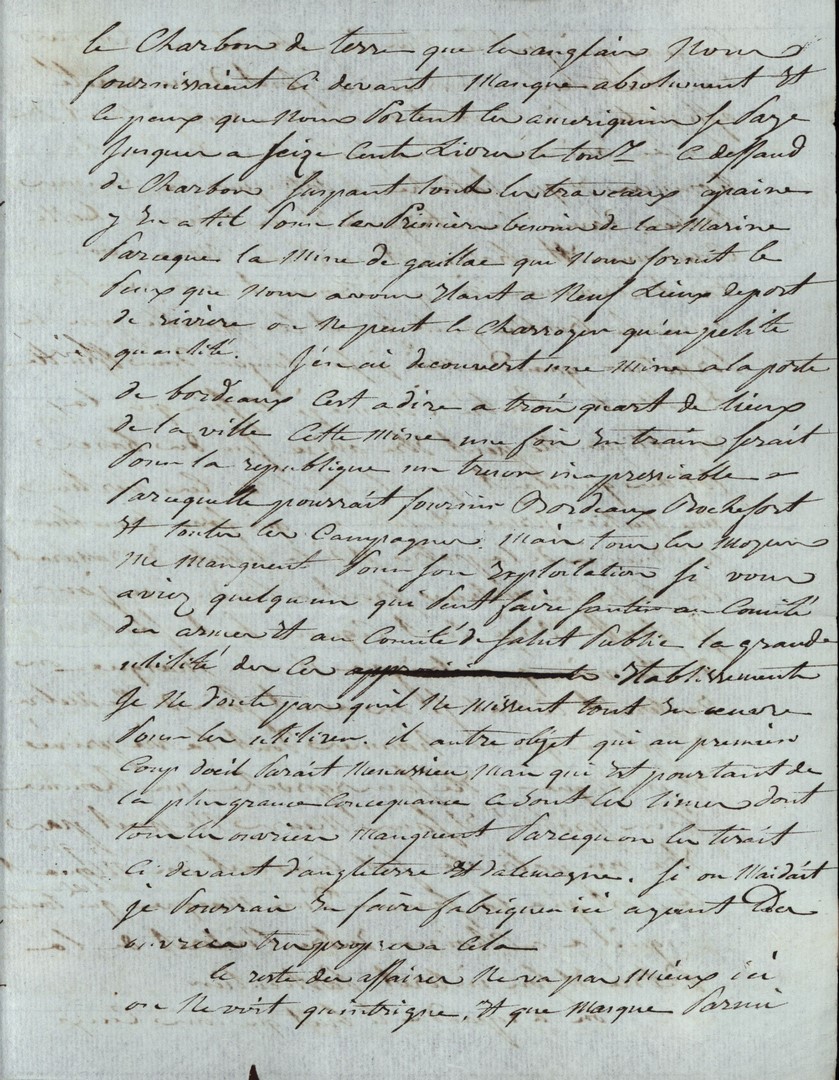 le Charbon de terre que les anglais Nous
fournissaient Ci devant Manque absolument Et
le peux que Nous Portent les ameriquins se Paye
Jusques a seize Cents Livres le ton.r Ce deffaud
de Charbon suspant tout les traveaux apaine
y En a til Pour les Premiers besoins de la Marine
Parceque la Mine de gaillac qui Nous fornit le
Peux que Nous avons Etant a Neuf Lieux de port
de riviere on Ne peut le Charroyer qu'en petite
quantité. J'en ai decouvert une Mine a la porte
de bordeaux C'est a dire a trois quart de lieux
de la ville Cette Mine une fois En train serait
Pour la republique un tresor inapressiable
Parcequelle pourrait fournir Bordeaux Rochefort
Et toutes les Campagnes. Mais tous les Moyens
Me Manquent Pour son Exploitation si vous
aviez quelqu un qui Peut faire sentir au Comité
des armes Et au Comité de Salut Public la grande
utilité des Ces Etablissements
Je Ne doute pas quil Ne Missent tout En œuvre
Pour les utiliser. il autre objet qui au premier
Coup d'oeil Parait Menussieu Mais qui Est pourtant de
la plus grance Concequance Ce sont les limes dont
tous les ouvriers Manquent Parcequon les tirait
Ci devant d'angleterre Et d'alemagne. Si on M'aidait
je Pourrais En faire fabriquer ici ayant Des
ouvriers tres propres a Cela
le reste des affaires Ne va pas Mieux ici
on Ne voit quintrigue, Et que Masque Parmi